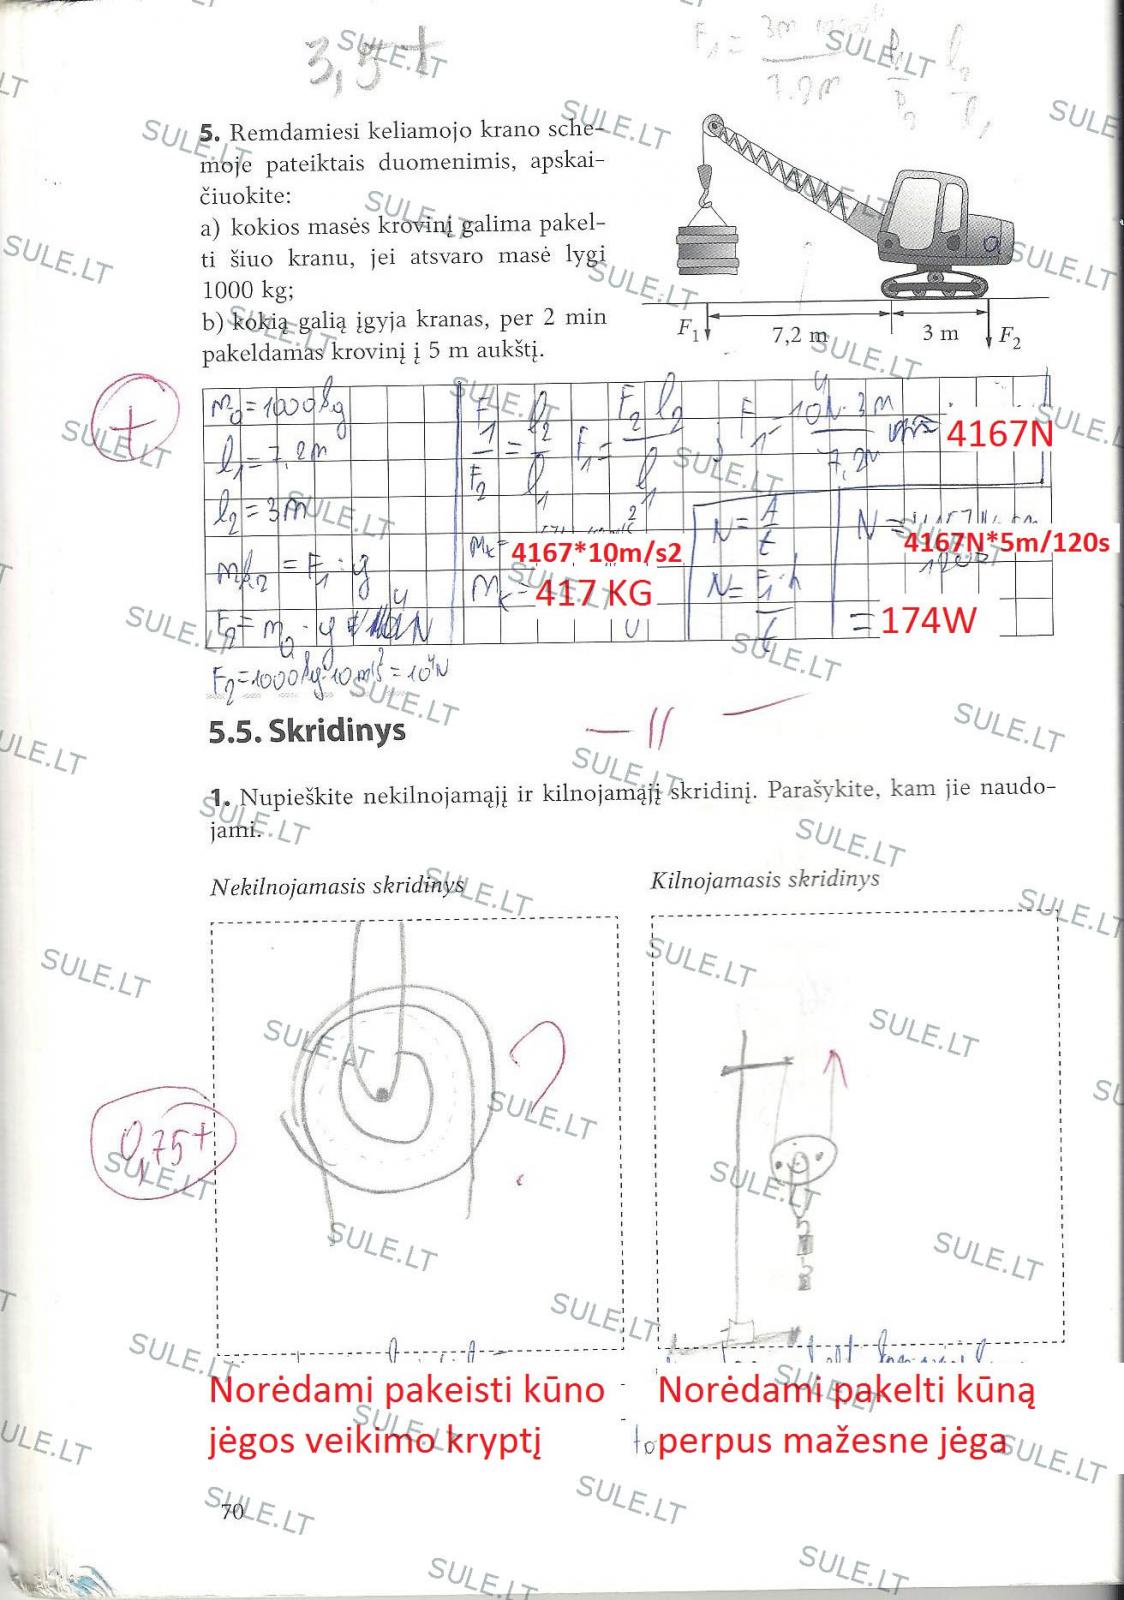 3,5+
5. Remdamiesi keliamojo krano sche-
moje pateiktais duomenimis, apskai-
čiuokite:
a) kokios masės krovinį galima pakel-
ti šiuo kranu, jei atsvaro masė lygi
1000 kg;
b) kokią galią įgyja kranas, per 2 min
pakeldamas krovinį į 5 m aukštį.
F₁ 7,2 m 3 m F₂
m₀=1000kg
l₁=7,2m
l₂=3m
F₁/F₂ = l₂/l₁
F₁ = F₂ l₂/l₁
4167N
4167*10m/s2
417 KG
N = A/t
N = F₁·h/t
4167N*5m/120s
= 174W
F₂=1000kg·10m/s²=10⁴N
5.5. Skridinys
1. Nupieškite nekilnojamąjį ir kilnojamąjį skridinį. Parašykite, kam jie naudo-
jami.
Nekilnojamasis skridinys
Kilnojamasis skridinys
?
0,75+
Norėdami pakeisti kūno
jėgos veikimo kryptį
Norėdami pakelti kūną
perpus mažesne jėga
70
SULE.LT